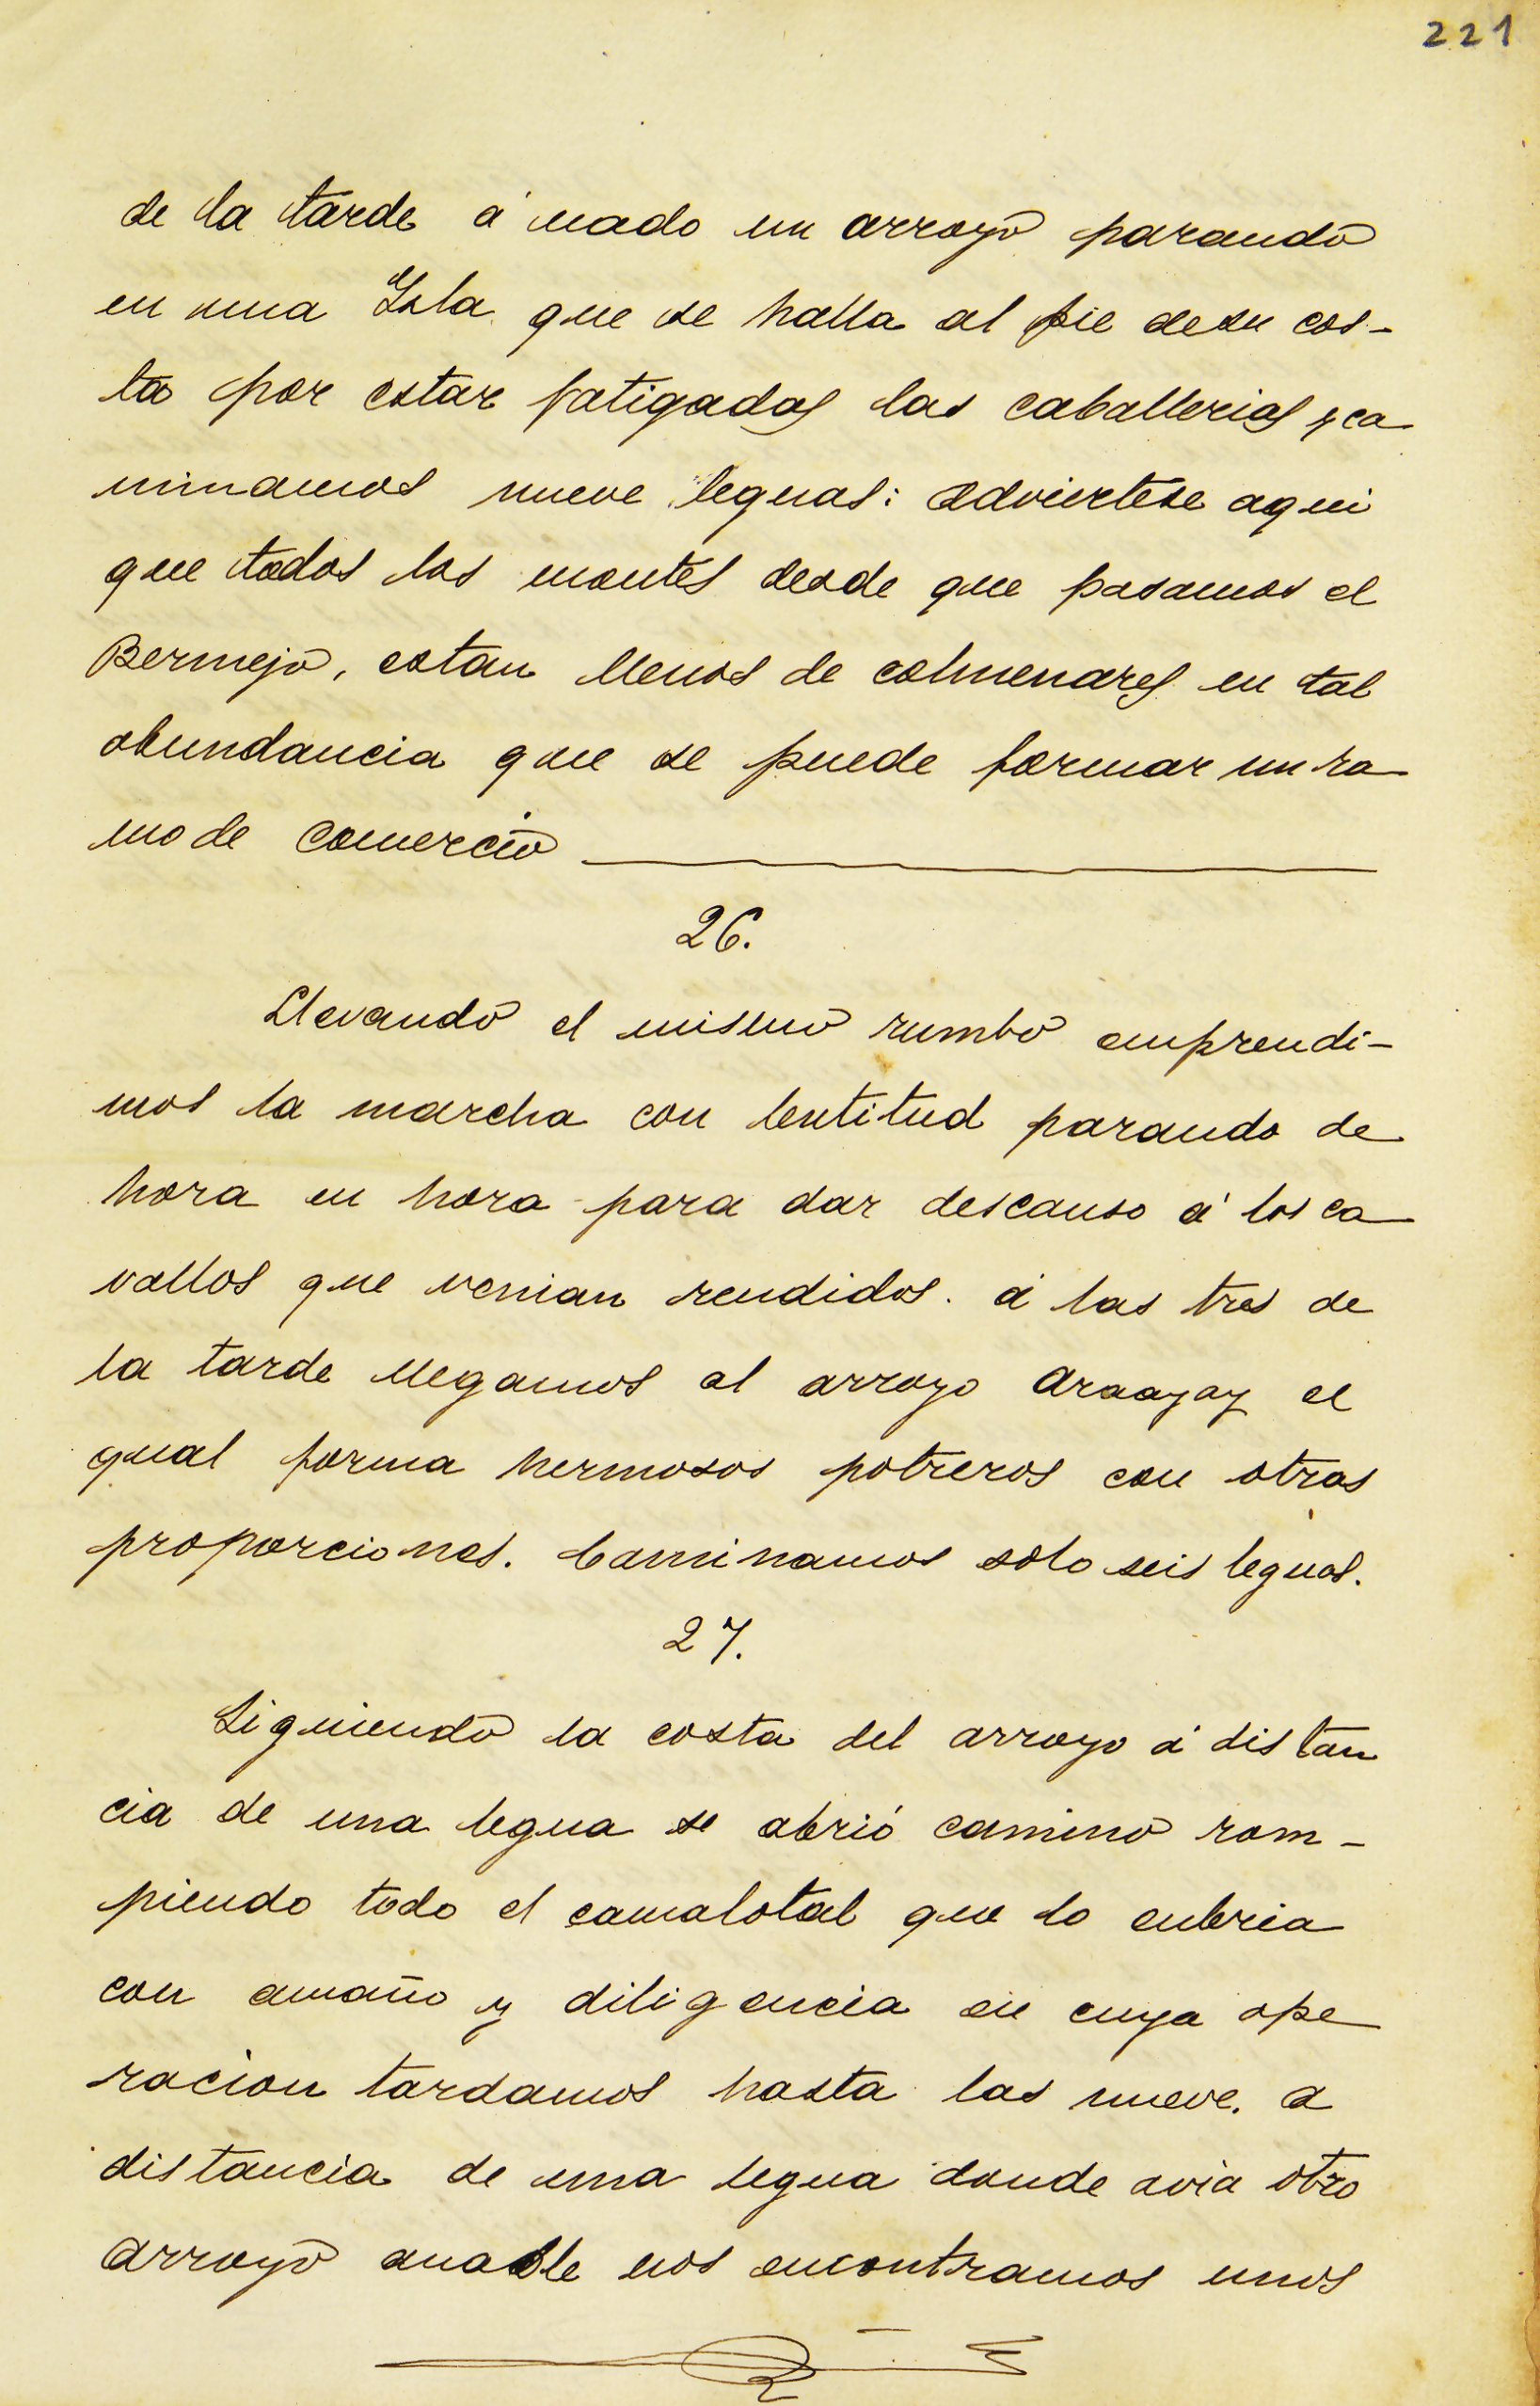 221
de la tarde á nado un arroyo parando
en una Isla que se halla al pie de su cos-
ta por estar fatigadas las caballerias y ca
minamos nueve leguas: adviertese aqui
que todos los montes desde que pasamos el
Bermejo, estan llenos de colmenares en tal
abundancia que se puede formar un ra
mo de comercio
26.
Llevando el mismo rumbo emprendi-
mos la marcha con lentitud parando de
hora en hora para dar descanso á los ca
vallos que venian rendidos. á las tres de
la tarde llegamos al arroyo Araayay el
qual forma hermosos potreros con otras
proporciones. Caminamos solo seis leguas.
27.
Siguiendo la costa del arroyo á distan
cia de una legua se abrió camino rom-
piendo todo el camalotal que lo cubria
con amaño y diligencia en cuya ope
racion tardamos hasta las nueve. a
distancia de una legua donde avia otro
arroyo nos encontramos unos